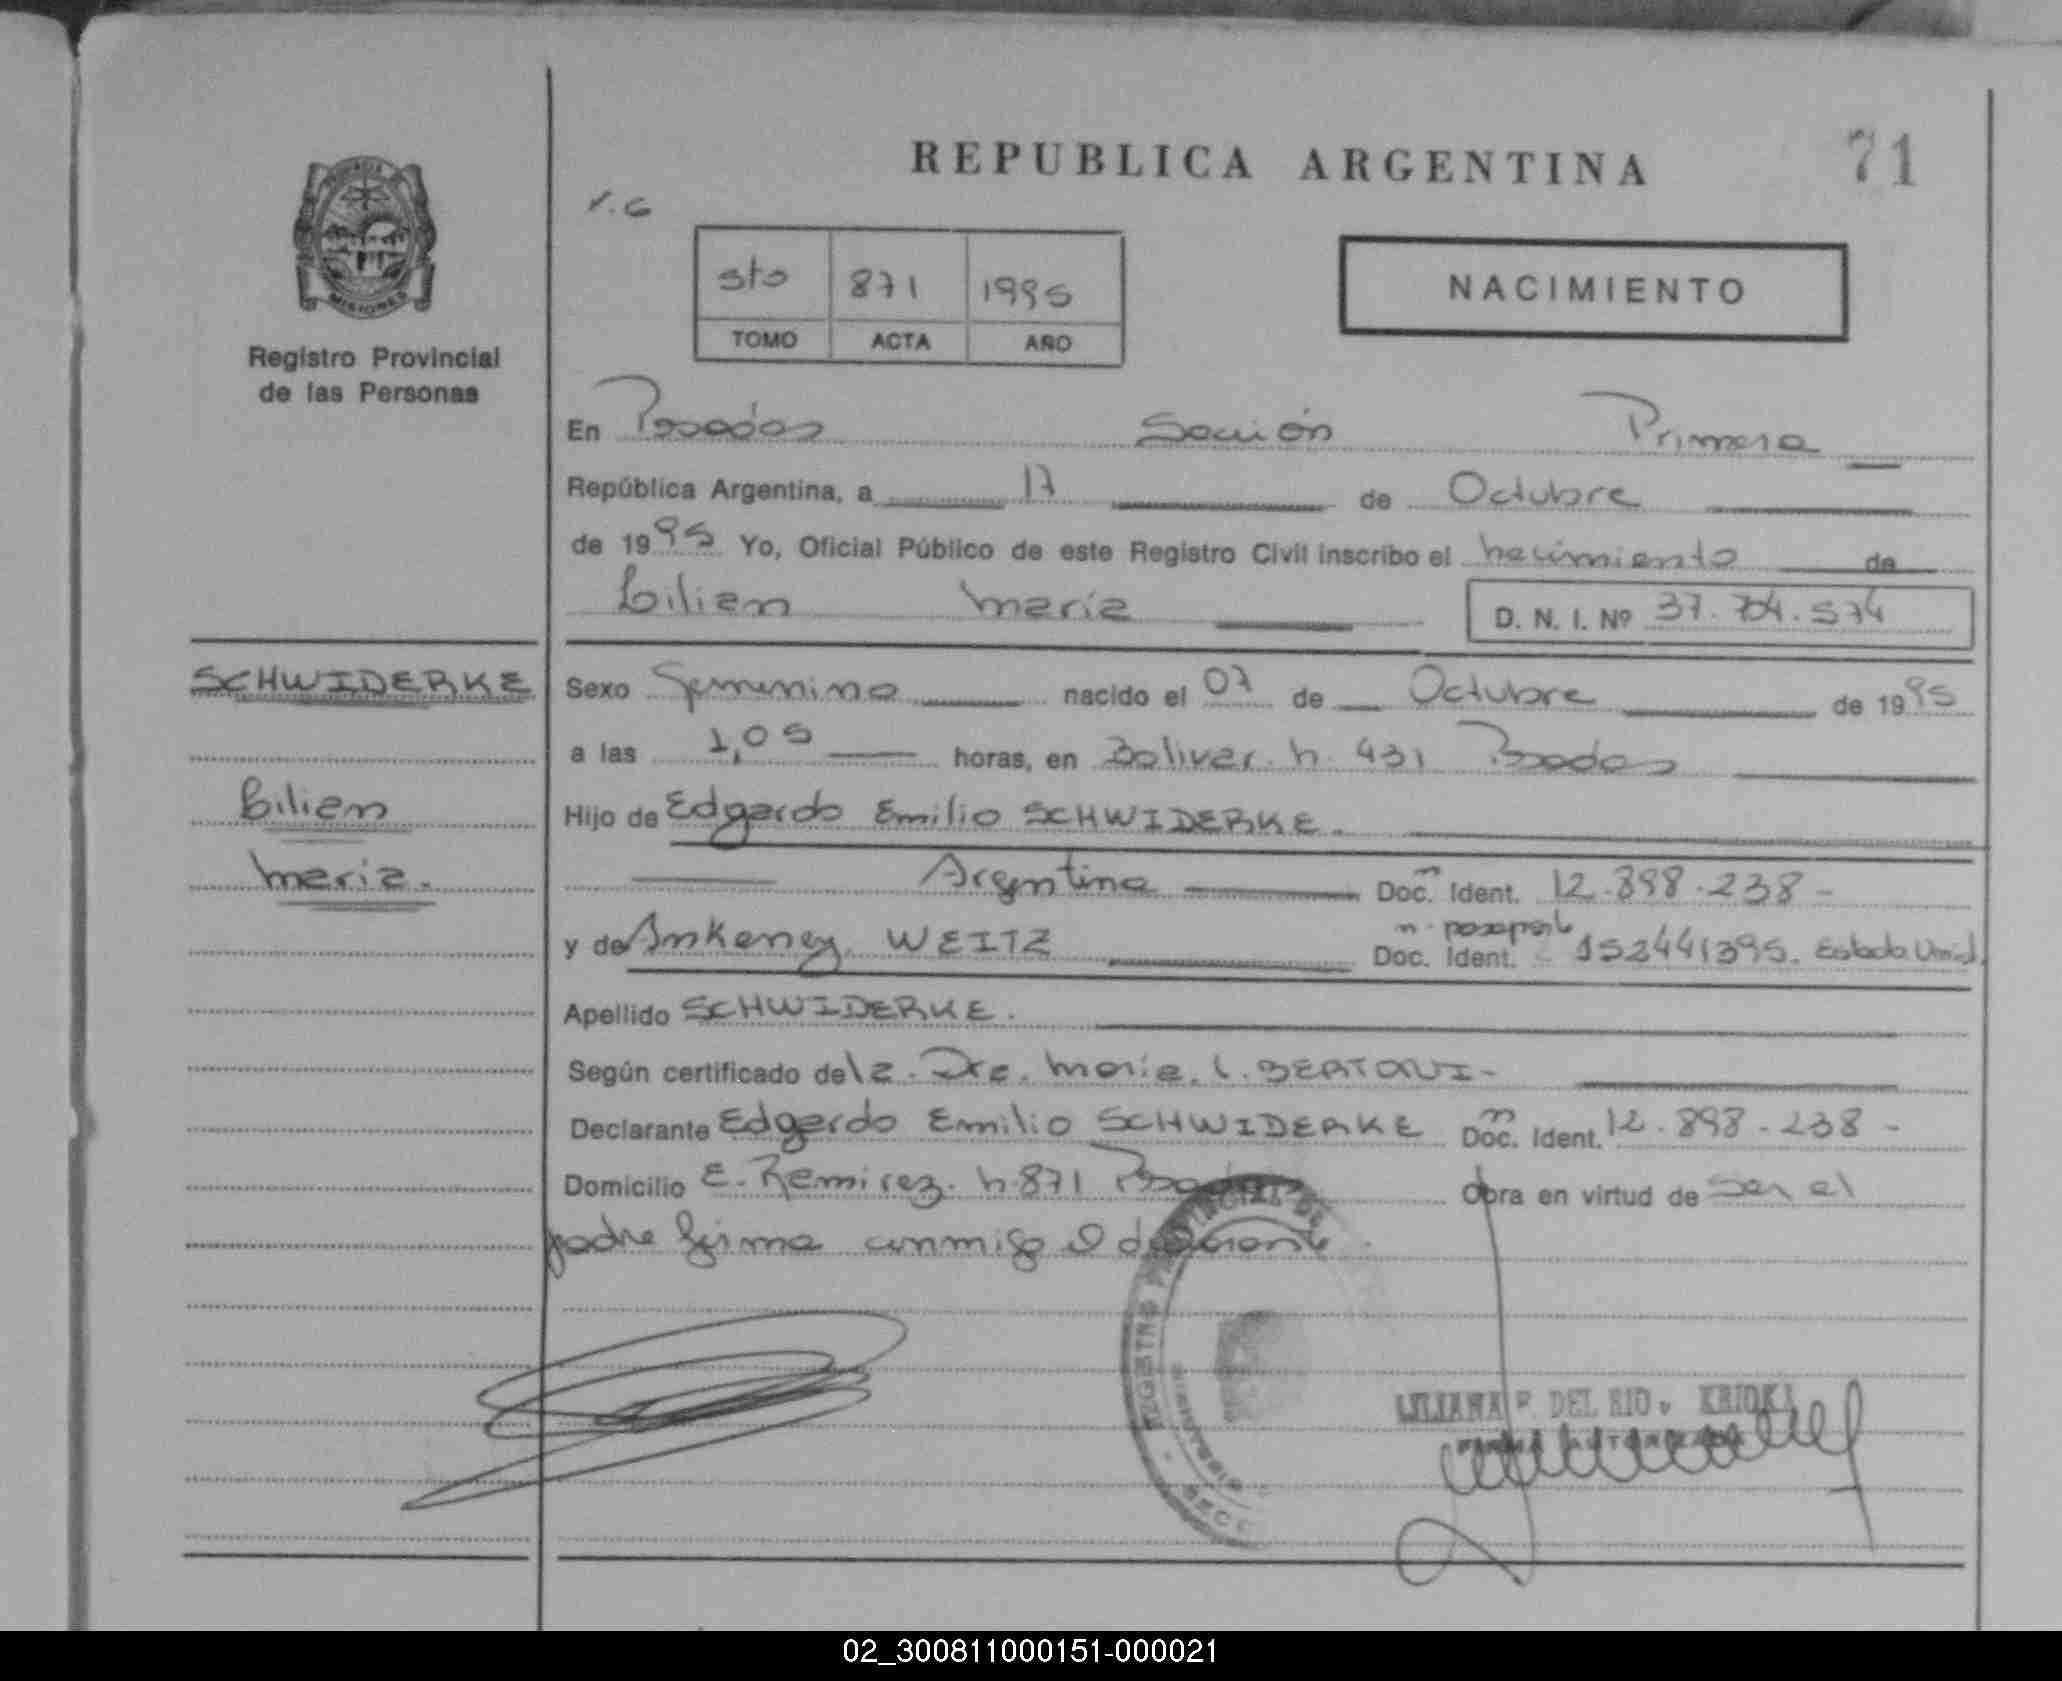 REPUBLICA ARGENTINA
71
sto 871 1995
TOMO ACTA AÑO
NACIMIENTO
MISIONES
Registro Provincial
de las Personas
En Posadas Sección Primera
República Argentina, a 17 de Octubre
de 1995 Yo, Oficial Público de este Registro Civil inscribo el nacimiento de
Lilian María D. N. I. Nº 37.704.574
SCHWIDERKE
Lilian
María.
Sexo Femenino nacido el 07 de Octubre de 1995
a las 1,05 horas, en Bolivar. n. 431 Posadas
Hijo de Edgardo Emilio SCHWIDERKE.
Argentina Doc. Ident. 12.898.238-
y de Ankeney WEITZ Doc. Ident. 152441395. Estado Unid.
Apellido SCHWIDERKE.
Según certificado de la. Dra. María. L. BERTONI-
Declarante Edgardo Emilio SCHWIDERKE Doc. Ident. 12.898.238-
Domicilio E. Ramirez. n. 871 Posadas Obra en virtud de Ser el
padre firma conmigo el declarante
REGISTRO PROVINCIAL DE
LILIANA F. DEL RIO
FIRMA AUTORIZADA
02_300811000151-000021